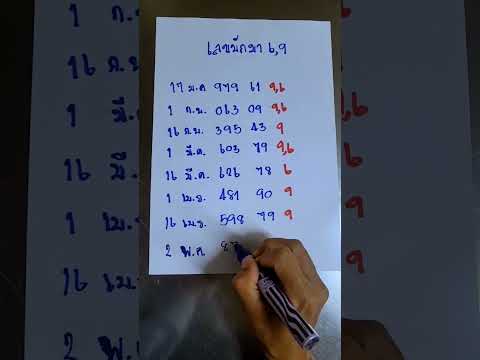 เลขมักมา 6,9
17 ม.ค 979 61 9,6
1 ก.พ. 063 09 9,6
16 ก.พ. 395 43 9
1 มี.ค. 603 79 9,6
16 มี.ค. 626 78 6
1 เม.ย. 481 90 9
16 เม.ย. 598 79 9
2 พ.ค.